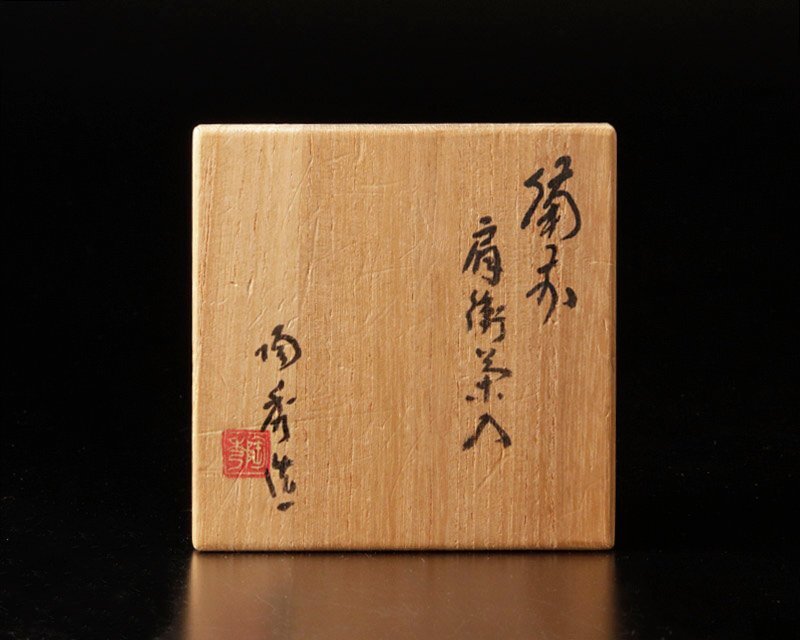 備前
肩衝茶入
陶秀造
陶秀